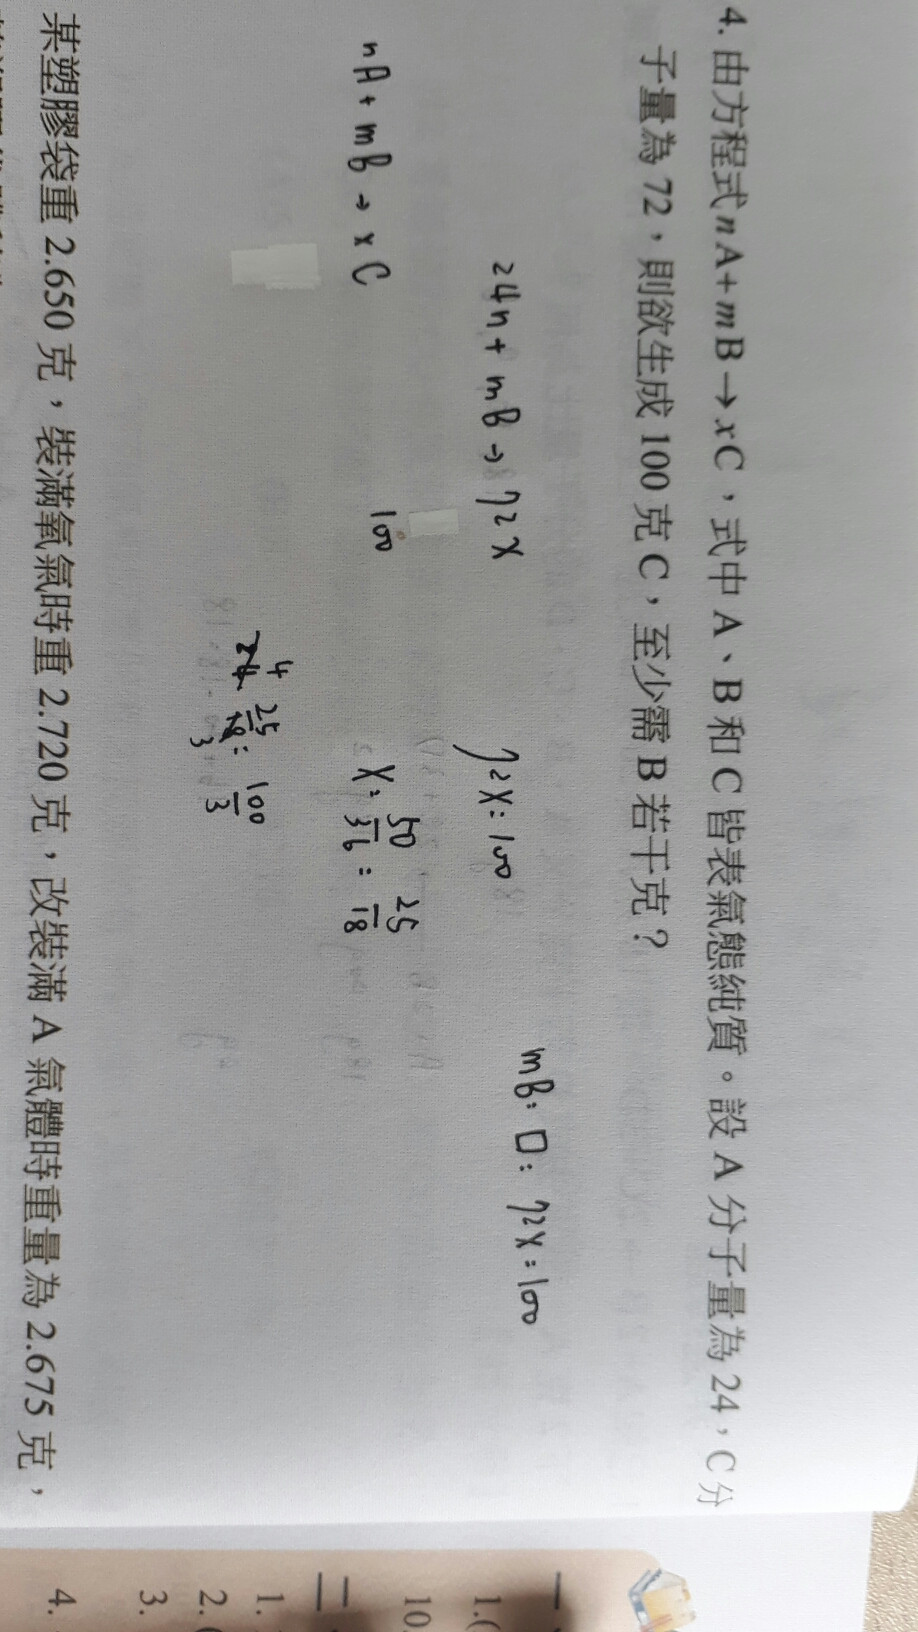 4. 由方程式 n A + m B → x C,式中 A、B 和 C 皆表氣態純質。設 A 分子量為 24,C 分
子量為 72,則欲生成 100 克 C,至少需 B 若干克?
24n + mB → 72x
72x = 100
mB : □ = 72x = 100
nA + mB → x C
100
x = 50/36 = 25/18
4
24 25/18 = 100/3
3
某塑膠袋重 2.650 克,裝滿氧氣時重 2.720 克,改裝滿 A 氣體時重量為 2.675 克,
一
1.(
10.
二
1.
2. (
3.
4.